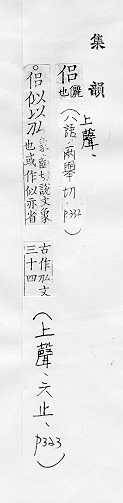 集韻
上聲、
侶儷也(八語、兩舉切、p332)
佀似以㠯說文象也或作似亦省古作㠯文三十四(上聲、六止、p323)